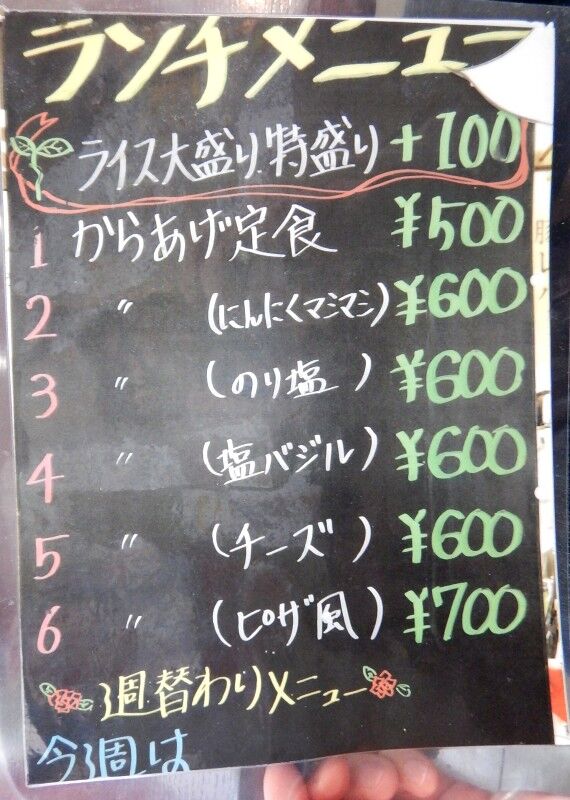 ランチメニュー
ライス大盛り.特盛り+100
1 からあげ定食 ¥500
2 〃 (にんにくマシマシ) ¥600
3 〃 (のり塩) ¥600
4 〃 (塩バジル) ¥600
5 〃 (チーズ) ¥600
6 〃 (ピザ風) ¥700
週替わりメニュー
今週は